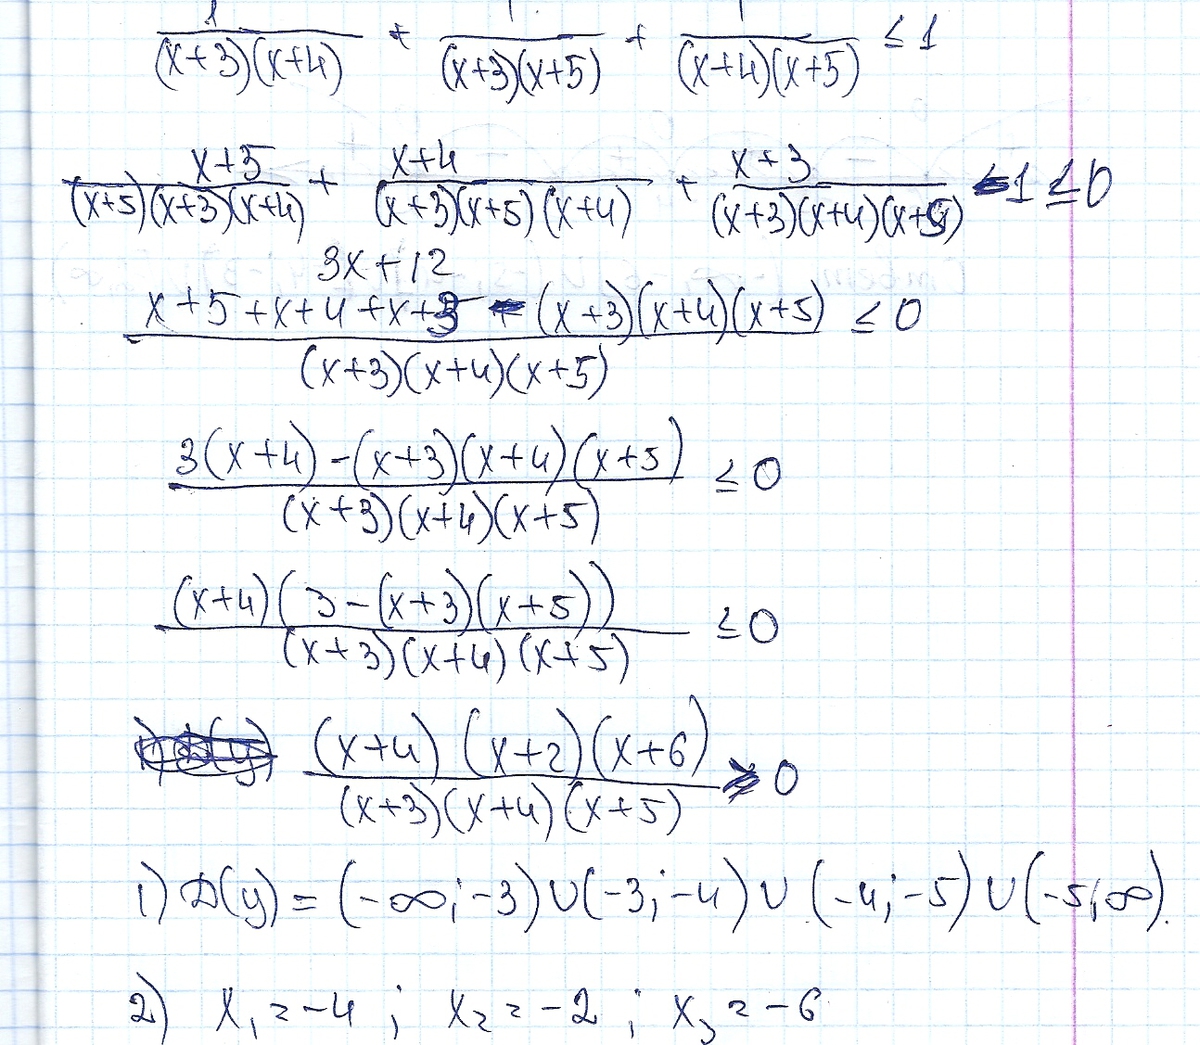 1/((x+3)(x+4)) + 1/((x+3)(x+5)) + 1/((x+4)(x+5)) ≤ 1
(x+5)/((x+5)(x+3)(x+4)) + (x+4)/((x+3)(x+5)(x+4)) + (x+3)/((x+3)(x+4)(x+5)) - 1 ≤ 0
3x+12
(x+5+x+4+x+3 - (x+3)(x+4)(x+5))/((x+3)(x+4)(x+5)) ≤ 0
(3(x+4)-(x+3)(x+4)(x+5))/((x+3)(x+4)(x+5)) ≤ 0
((x+4)(3-(x+3)(x+5)))/((x+3)(x+4)(x+5)) ≤ 0
((x+4)(x+2)(x+6))/((x+3)(x+4)(x+5)) ≥ 0
1) D(y) = (-∞;-3)∪(-3;-4)∪(-4;-5)∪(-5;∞).
2) x₁=-4; x₂=-2; x₃=-6